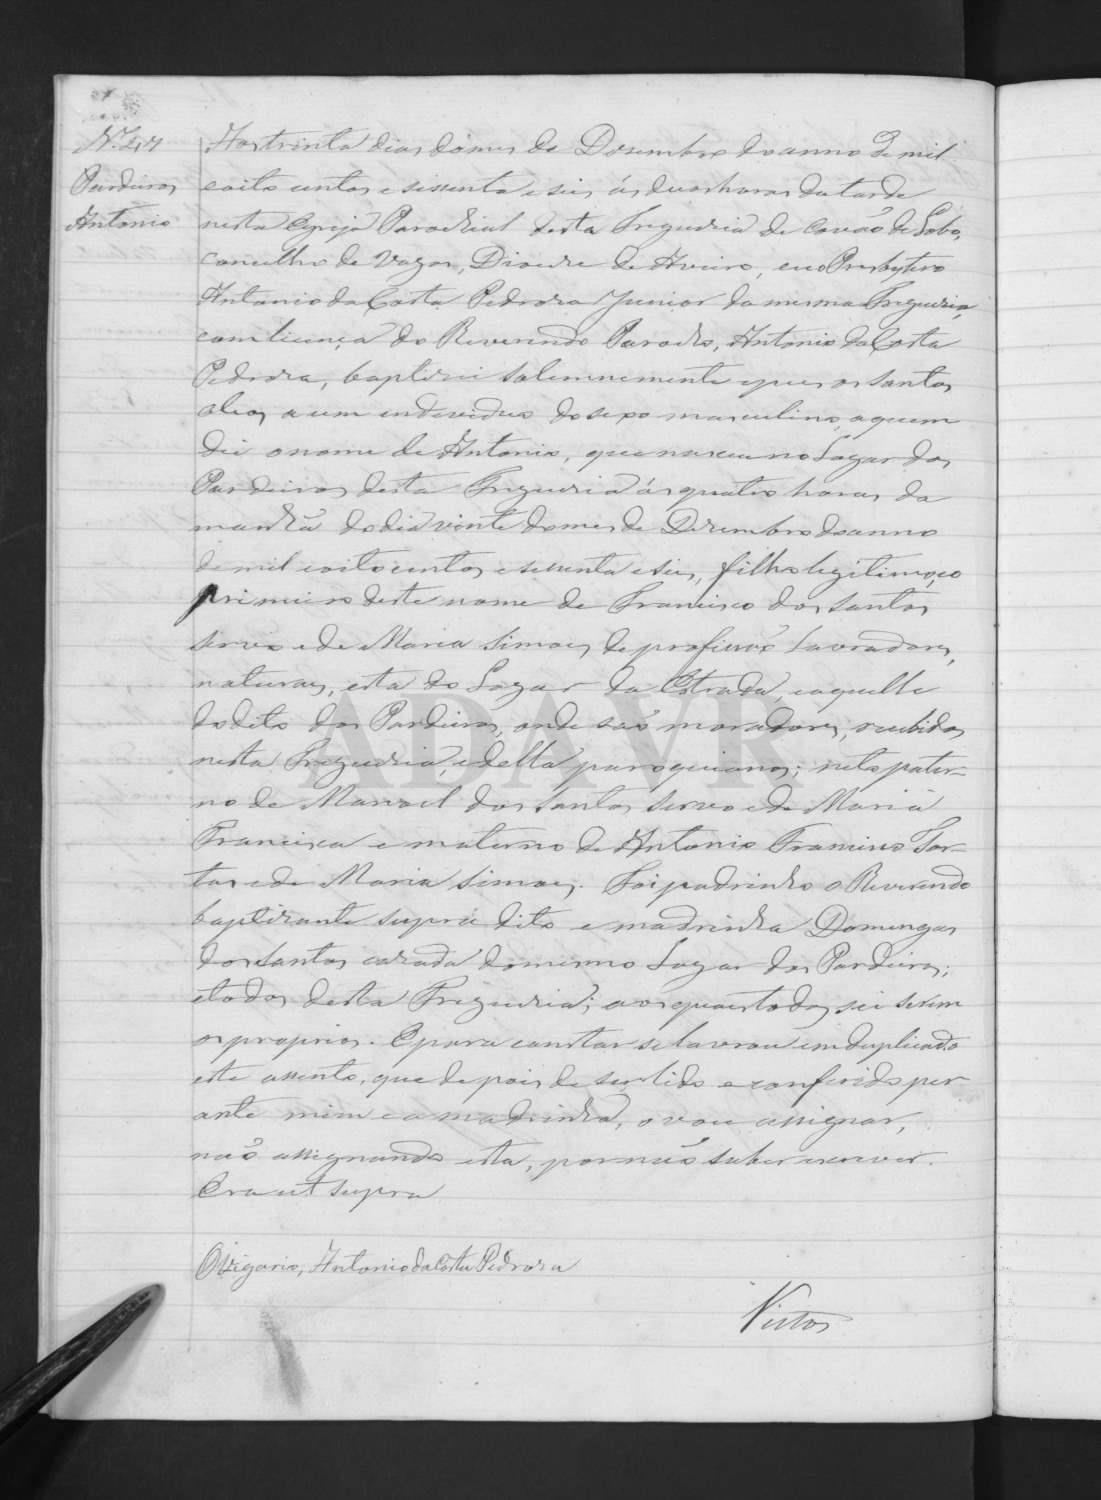 N.º 47
Pardeiros
Antonio
Aos trinta dias do mes de Desembro do anno de mil
e oito centos e sessenta e seis ás duas horas da tarde
nesta Egreja Parochial desta Freguesia de Covão de Lobo,
concelho de Vagos, Diocese de Aveiro, eu o Presbytero
Antonio da Costa Pedrosa Junior da mesma Freguesia,
com licença do Reverendo Parocho, Antonio da Costa
Pedrosa, baptisei solemnemente e pus os santos
oleos a um individuo do sexo masculino, a quem
dei o nome de Antonio, que nasceu no Logar dos
Pardeiros desta Freguesia ás quatro horas da
manhã do dia vinte do mes de Desembro do anno
de mil e oito centos e sessenta e seis, filho legitimo, e o
primeiro deste nome de Francisco dos Santos
Servo e de Maria Simoes de profissão Lavradores,
naturaes, esta do Logar da Estrada, e aquelle
do dito dos Pardeiros, onde são moradores, recebidos
nesta Freguesia, e della paroquianos; neto pater-
no de Manoel dos Santos Servo e de Maria
Francisca e materno de Antonio Francisco Tor-
tas e de Maria Simoes. Foi padrinho o Reverendo
baptisante supra dito e madrinha Domingas
dos Santos casada do mesmo Logar dos Pardeiros;
e todos desta Freguesia; aos quaes todos sei serem
os proprios. E para constar se lavrou em duplicado
este assento, que depois de ser lido e conferido per-
ante mim e a madrinha, o vou assignar,
não assignando esta, por não saber escrever.
Era ut supra
O Vigario, Antonio da Costa Pedrosa
Vistos
ADAVR